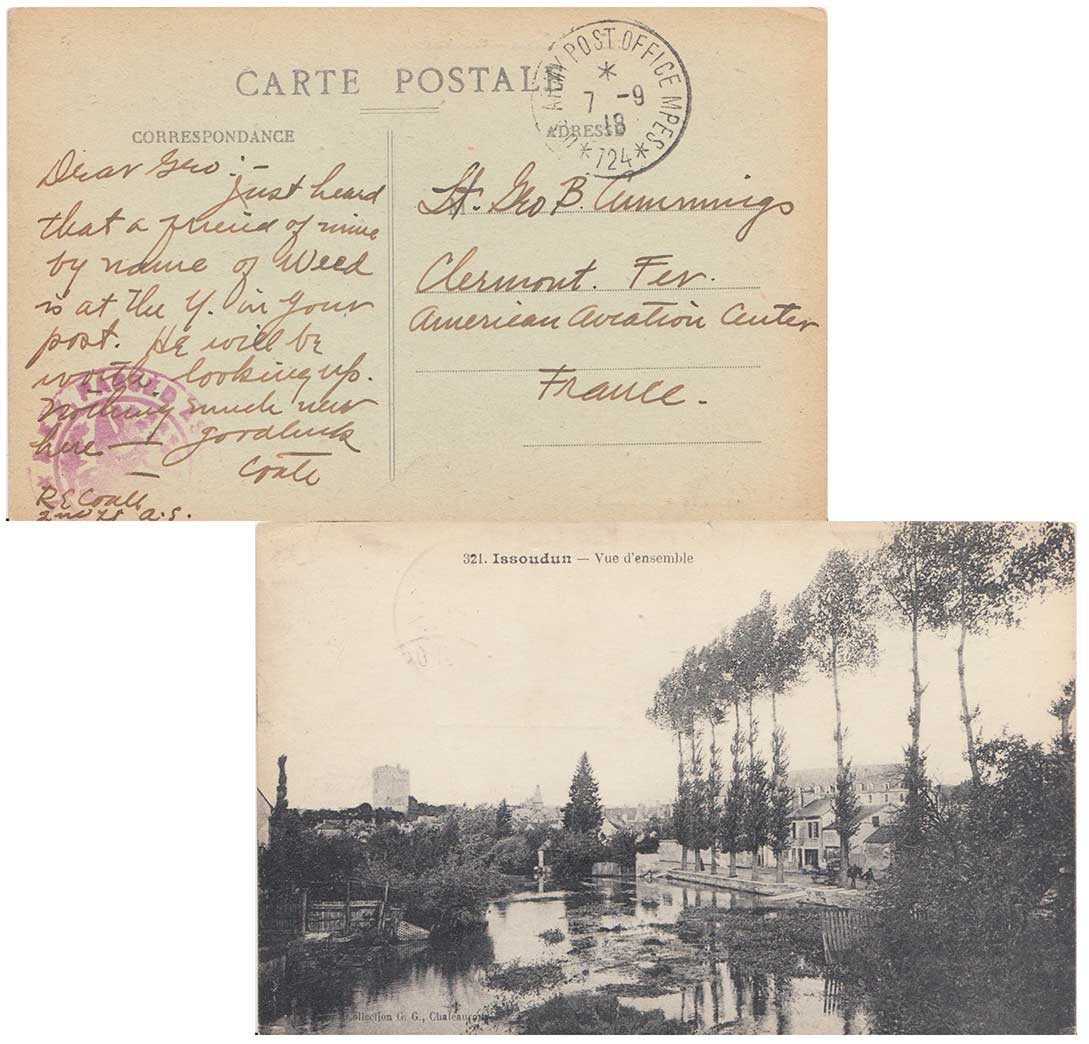 CARTE POSTALE
U.S. ARMY POST OFFICE MPES
7 -9
18
* 724 *
CORRESPONDANCE
ADRESSE
Dear Geo:-
just heard
that a friend of mine
by name of Weed
is at the Y. in your
post. He will be
worth looking up.
Nothing much new
here — good luck
— Coale
R E Coale
2nd Lt A.S.
Lt. Geo B. Cummings
Clermont. Fer.
American Aviation Center
France.
321. Issoudun — Vue d'ensemble
Collection G. G., Chateauroux